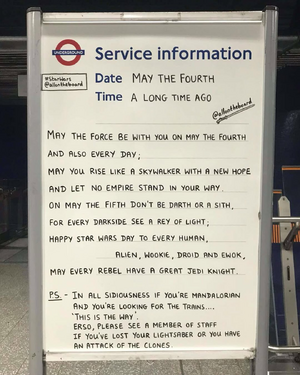 UNDERGROUND
Service information
#StarWars
@allontheboard
Date MAY THE FOURTH
Time A LONG TIME AGO
@allontheboard
MAY THE FORCE BE WITH YOU ON MAY THE FOURTH
AND ALSO EVERY DAY;
MAY YOU RISE LIKE A SKYWALKER WITH A NEW HOPE
AND LET NO EMPIRE STAND IN YOUR WAY.
ON MAY THE FIFTH DON'T BE DARTH OR A SITH,
FOR EVERY DARKSIDE SEE A REY OF LIGHT;
HAPPY STAR WARS DAY TO EVERY HUMAN,
ALIEN, WOOKIE, DROID AND EWOK,
MAY EVERY REBEL HAVE A GREAT JEDI KNIGHT.
PS - IN ALL SIDIOUSNESS IF YOU'RE MANDALORIAN
AND YOU'RE LOOKING FOR THE TRAINS....
'THIS IS THE WAY'.
ERSO, PLEASE SEE A MEMBER OF STAFF
IF YOU'VE LOST YOUR LIGHTSABER OR YOU HAVE
AN ATTACK OF THE CLONES